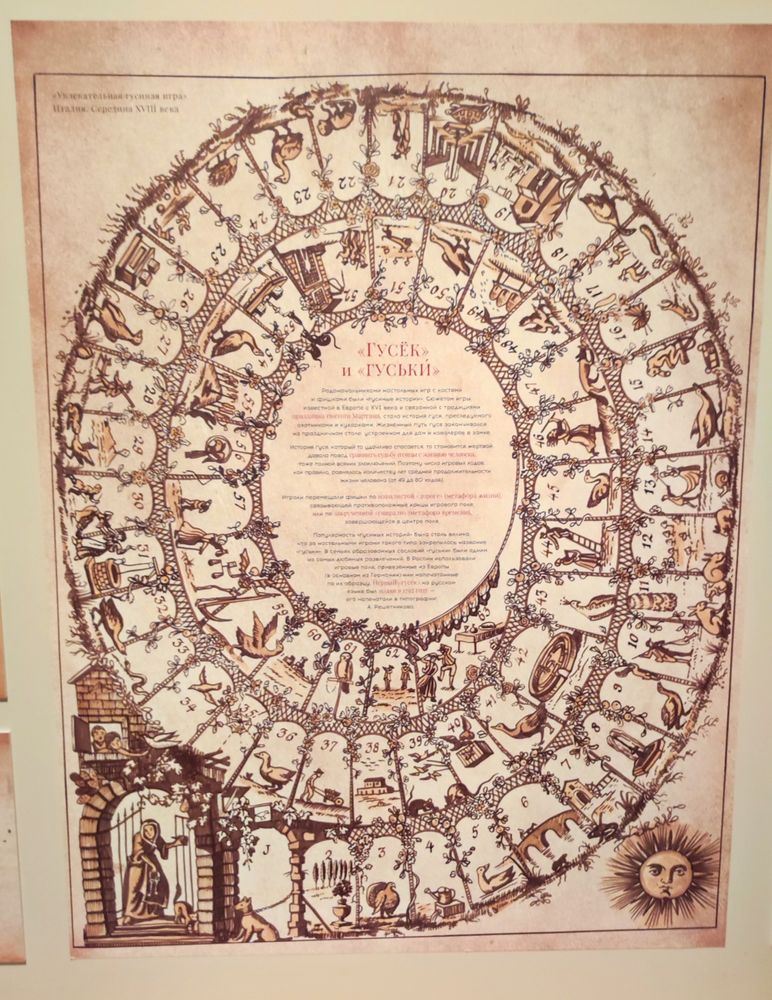 «Увлекательная гусиная игра»
Италия. Середина XVIII века
«ГУСЁК»
и «ГУСЬКИ́»
Родоначальниками настольных игр с костями
и фишками были «гусиные истории». Сюжетом игры,
известной в Европе с XVI века и связанной с традициями
праздника святого Мартина, стала история гуся, преследуемого
охотниками и кухарками. Жизненный путь гуся заканчивался
на праздничном столе, устроенном для дам и кавалеров в замке.
История гуся, который то удачливо спасается, то становится жертвой,
давала повод сравнить судьбу птицы с жизнью человека,
тоже полной всяких злоключений. Поэтому число игровых ходов,
как правило, равнялось количеству лет средней продолжительности
жизни человека (от 49 до 80 ходов).
Игроки перемещали фишки по извилистой «дороге» (метафора жизни),
связывающей противоположные концы игрового поля,
или по закрученной спирали (метафора времени),
завершающейся в центре поля.
Популярность «гусиных историй» была столь велика,
что за настольными играми такого типа закрепилось название
«гуськи». В семьях образованных сословий «гуськи» были одним
из самых любимых развлечений. В России использовали
игровые поля, привезённые из Европы
(в основном из Германии) или напечатанные
по их образцу. Первый «гусёк» на русском
языке был издан в
его напечатали в типографии
А. Решетникова.
J
3
4
5
6
7
8
9
10
11
12
13
14
15
16
17
18
19
20
21
22
23
24
25
26
27
28
30
33
34
35
36
37
38
39
40
42
44
45
47
48
49
50
51
54
57
60
62